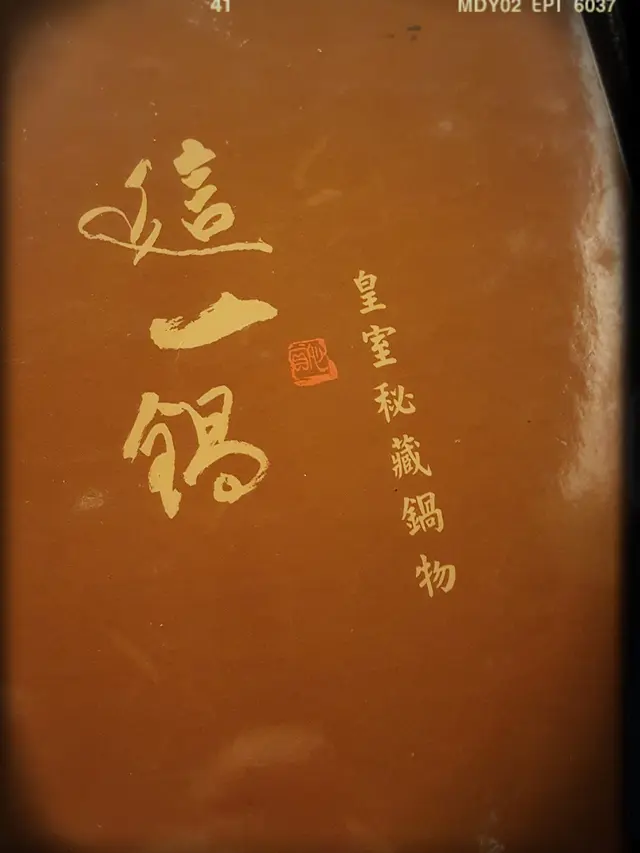 41 MDY02 EPT 6037
這一鍋
皇室秘藏鍋物